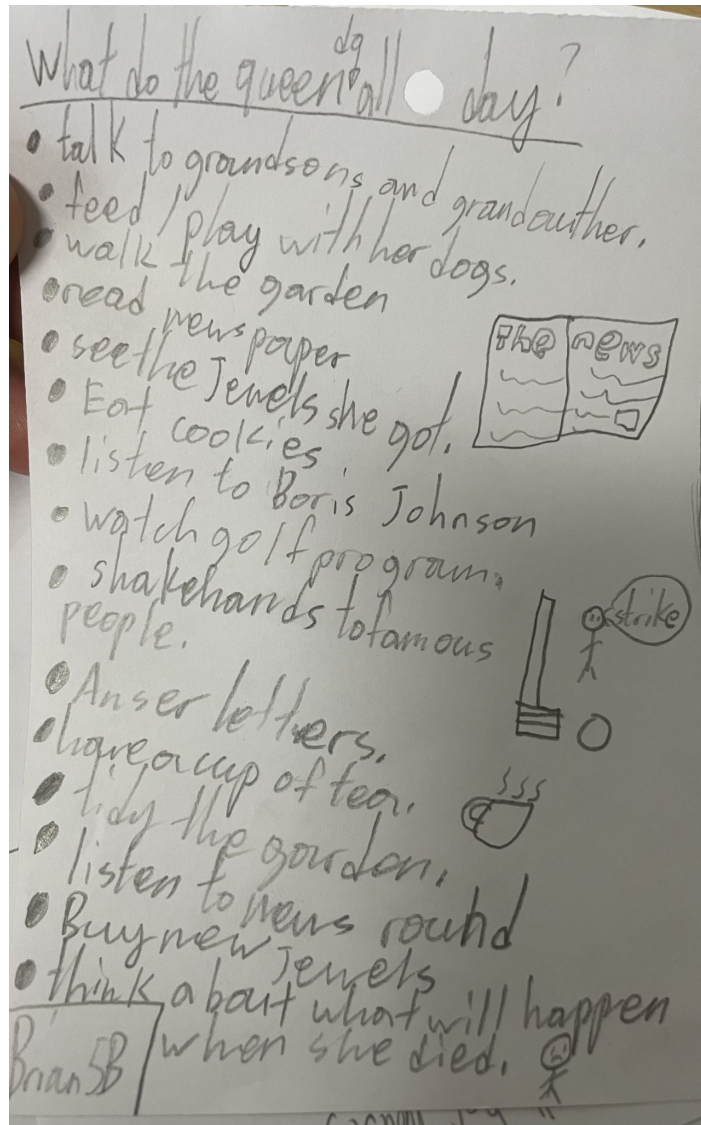 What do the queen do all day?
• talk to grandsons and grandauther.
• feed / play with her dogs.
• walk the garden
• read newspaper
• see the Jewels she got.
The news
• Eat cookies
• listen to Boris Johnson
• watch golf program.
• shakehands to famous
people.
strike
• Anser letters.
• have a cup of tea.
• tidy the garden.
• listen to news round
• Buy new Jewels
• think about what will happen
when she died.
Brian 5B